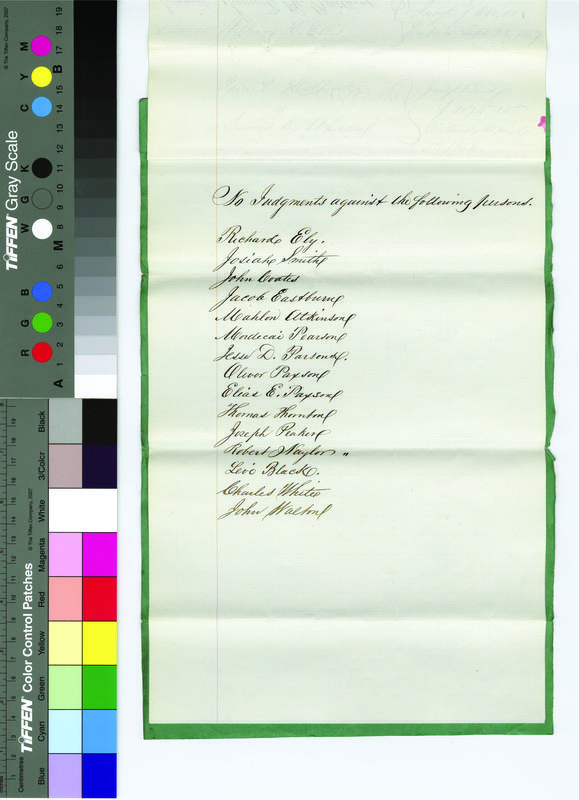 No Judgments against the following persons.
Richard Ely.
Josiah Smith
John Coates
Jacob Eastburn
Mahlon Atkinson
Mordecai Pearson
Jesse D. Parsons.
Oliver Paxson
Elias E. Paxson
Thomas Thornton
Joseph Peaker
Robert Naylor "
Levi Black.
Charles White
John Walton
TIFFEN Gray Scale
© The Tiffen Company, 2007
R G B W G K C Y M
A 1 2 3 4 5 6 M 8 9 10 11 12 13 14 15 B 17 18 19
TIFFEN Color Control Patches
© The Tiffen Company, 2007
Blue Cyan Green Yellow Red Magenta White 3/Color Black
Centimetres